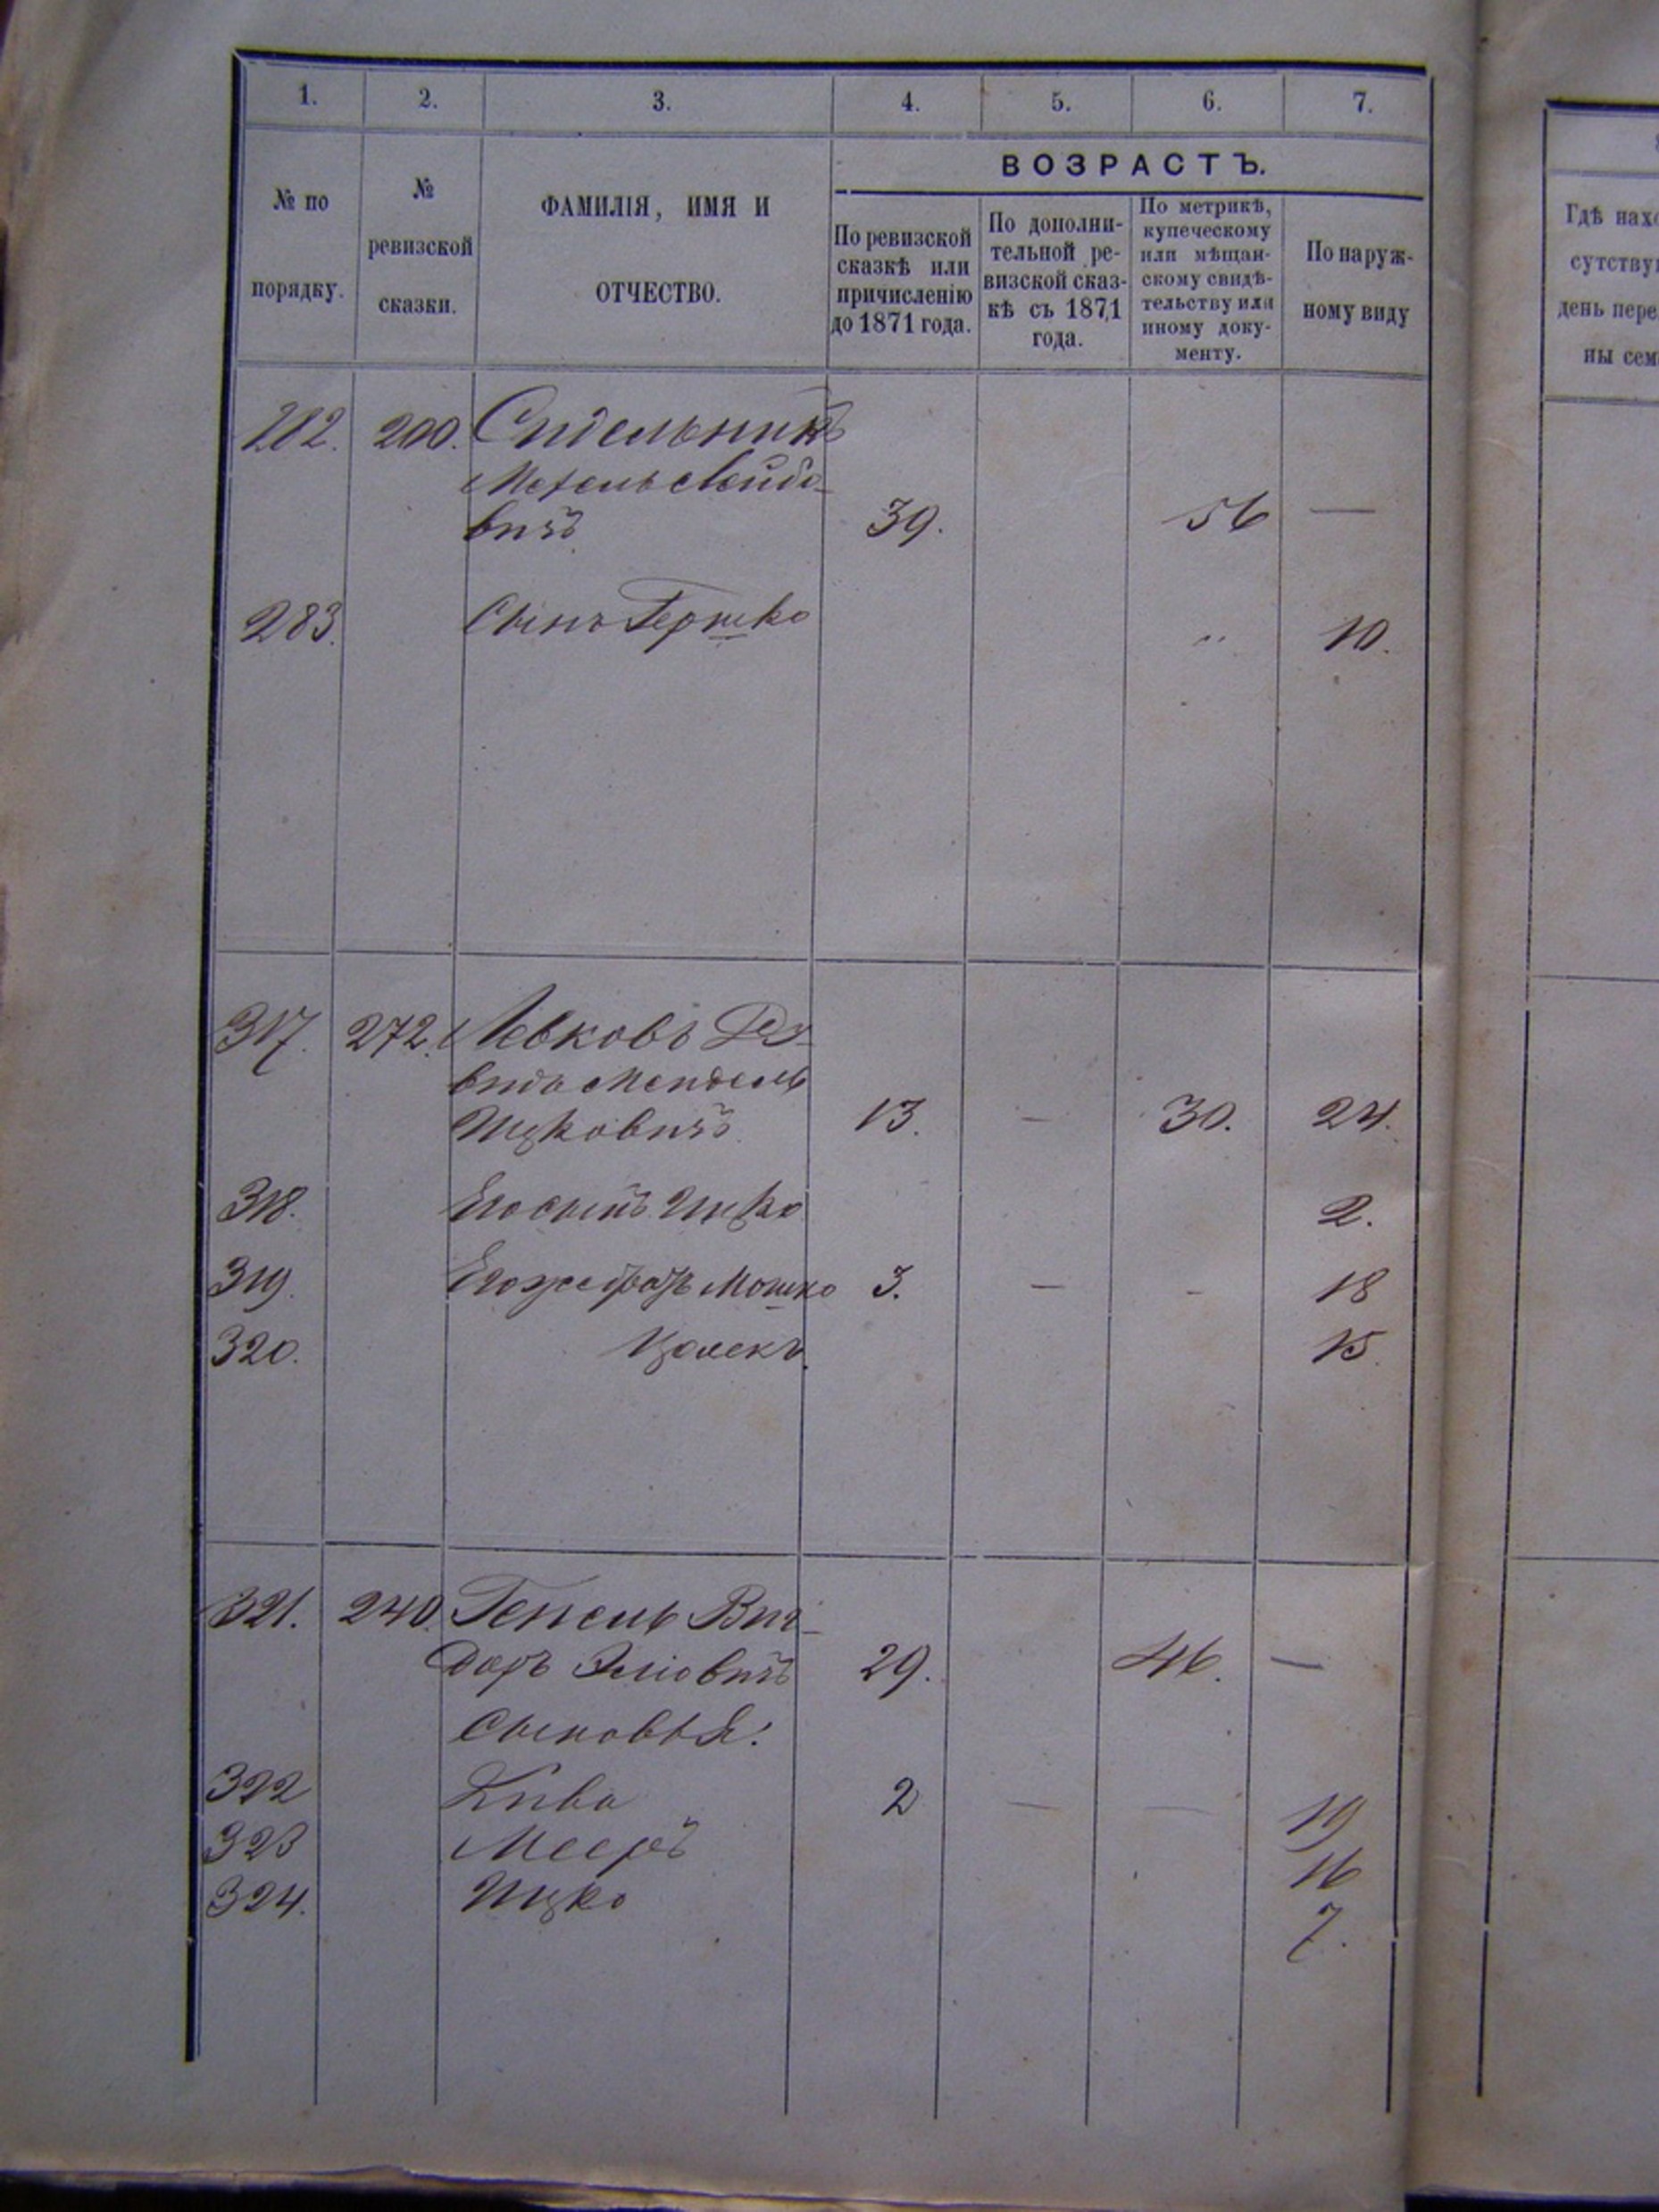 1. 2. 3. 4. 5. 6. 7.
№ по порядку.
№ ревизской сказки.
ФАМИЛІЯ, ИМЯ И
ОТЧЕСТВО.
ВОЗРАСТЪ.
По ревизской
сказкѣ или
причисленію
до 1871 года.
По дополни-
тельной ре-
визской сказ-
кѣ съ 1871
года.
По метрикѣ,
купеческому
или мѣщан-
скому свидѣ-
тельству или
иному доку-
менту.
По наруж-
ному виду
Гдѣ нахо
сутству
день пере
ны сем
282. 200. Сидельникъ
Мехель Лейбо-
вичъ 39. 56 —
283. Сынъ Гершко " 10.
317. 272. Левковъ Да-
видъ Мендель
Ицковичъ 13. — 30. 24.
318. Его сынъ Ицко 2.
319. Его же братъ Мошко 3. — - 18
320. 15.
321. 240. Генель
Эліовичъ 29. 46. —
Сыновья:
322 Акива 2 — — 19
323 Мееръ 16
324. Ицко 7.